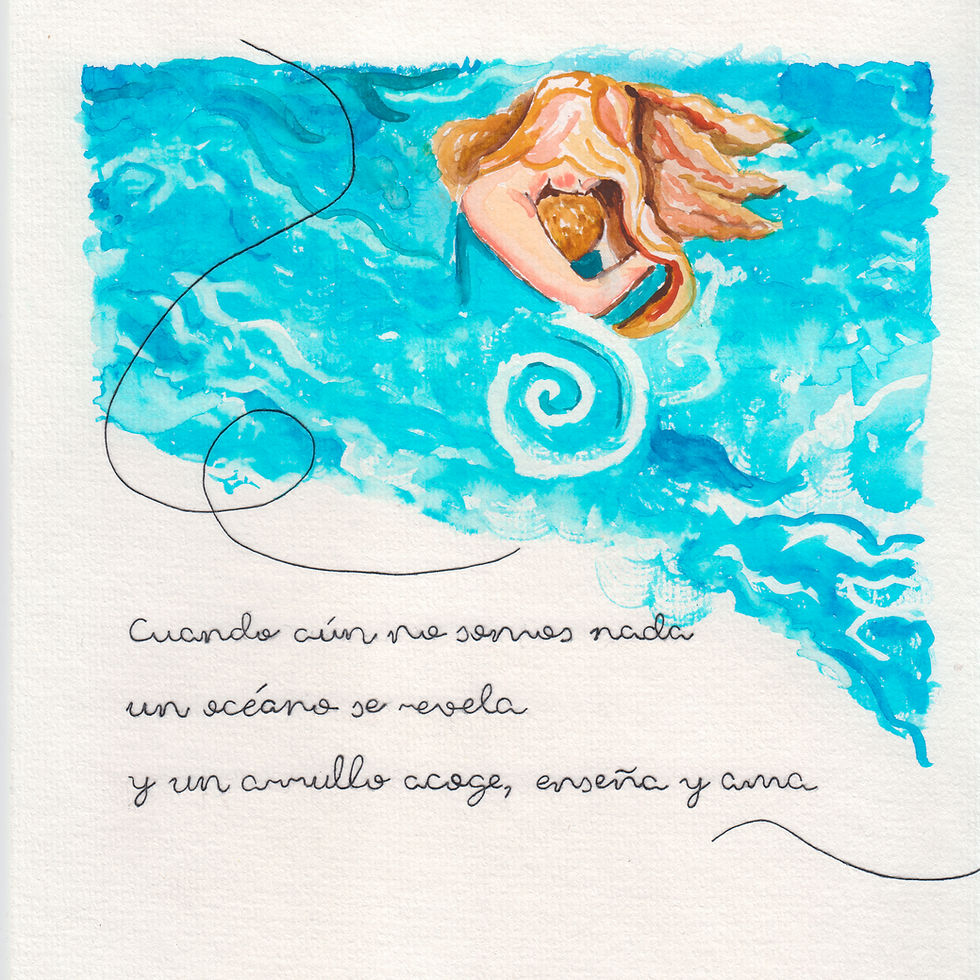 Cuando aún no somos nada
un océano se revela
y un arrullo acoge, enseña y ama